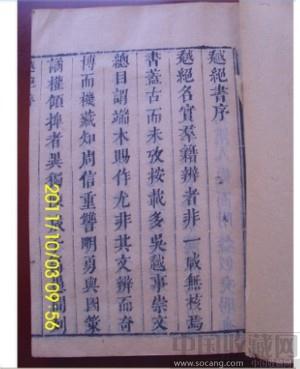 越絕書序
越絕名實羣籍辨者非一咸無核焉
書蓋古而未攷按載多吳越事崇文
總目謂端木賜作尤非其文辨而奇
博而機藏知周信重讐明勇與圖策
謀權傾捭者異獨
越絕
2011/10/03 09:56
中国收藏网
www.socang.com